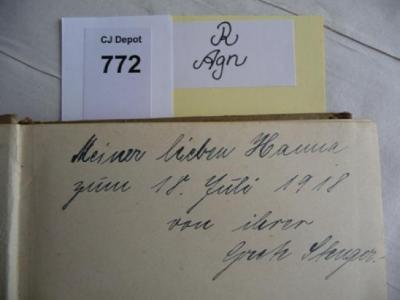 CJ Depot
772
R
Agn
Meiner lieben Hanna
zum 18. Juli 1918
von ihrer
Grete